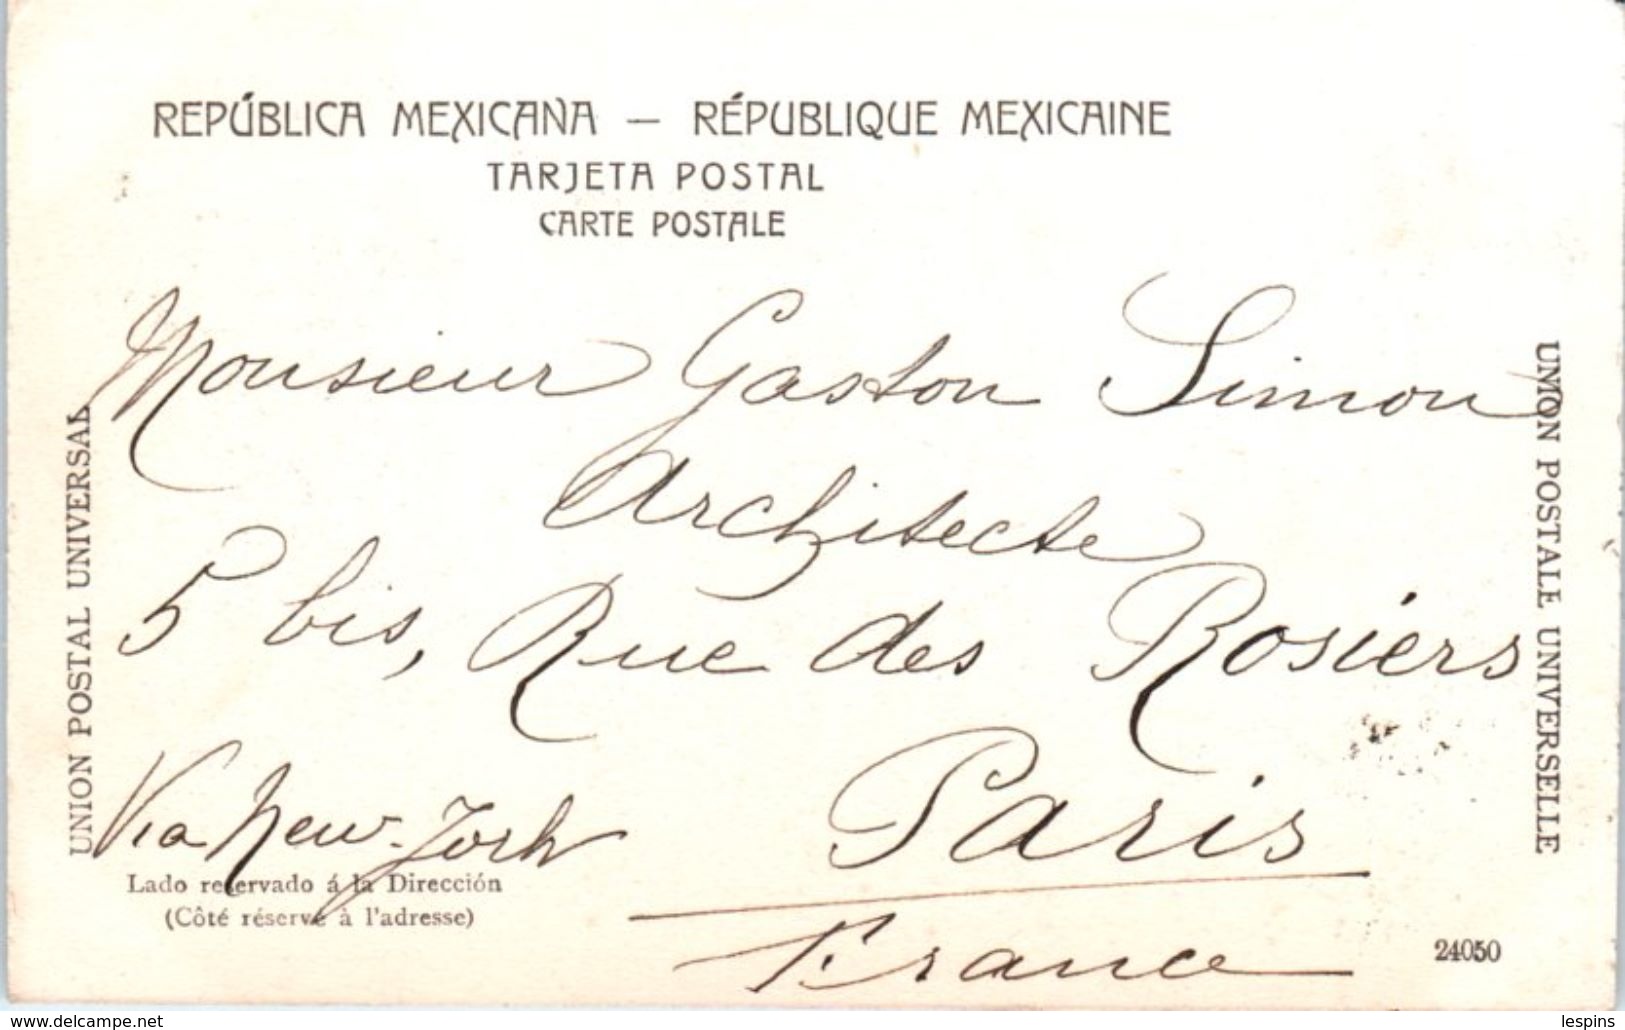 REPÚBLICA MEXICANA — RÉPUBLIQUE MEXICAINE
TARJETA POSTAL
CARTE POSTALE
UNION POSTAL UNIVERSAL
UNION POSTALE UNIVERSELLE
Monsieur Gaston Simon
Architecte
5 bis, Rue des Rosiers
Paris
France
Via New-York
Lado reservado á la Dirección
(Côté réservé à l'adresse)
24050
www.delcampe.net
lespins